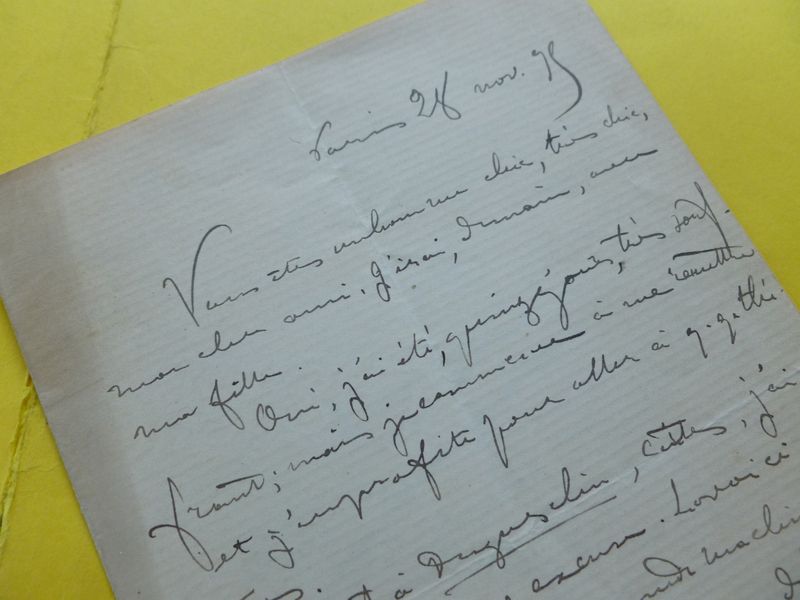 Paris 28 nov. 95
Vous êtes un homme chic, très chic,
mon cher ami. J'irai, demain, avec
ma fille.
Oui, j'ai été, quinze jours, très souf-
frant; mais je commence à me remettre
et j'en profite pour aller à q.q. thé.
à Duguesclin, certes, j'ai
excuse. La voici